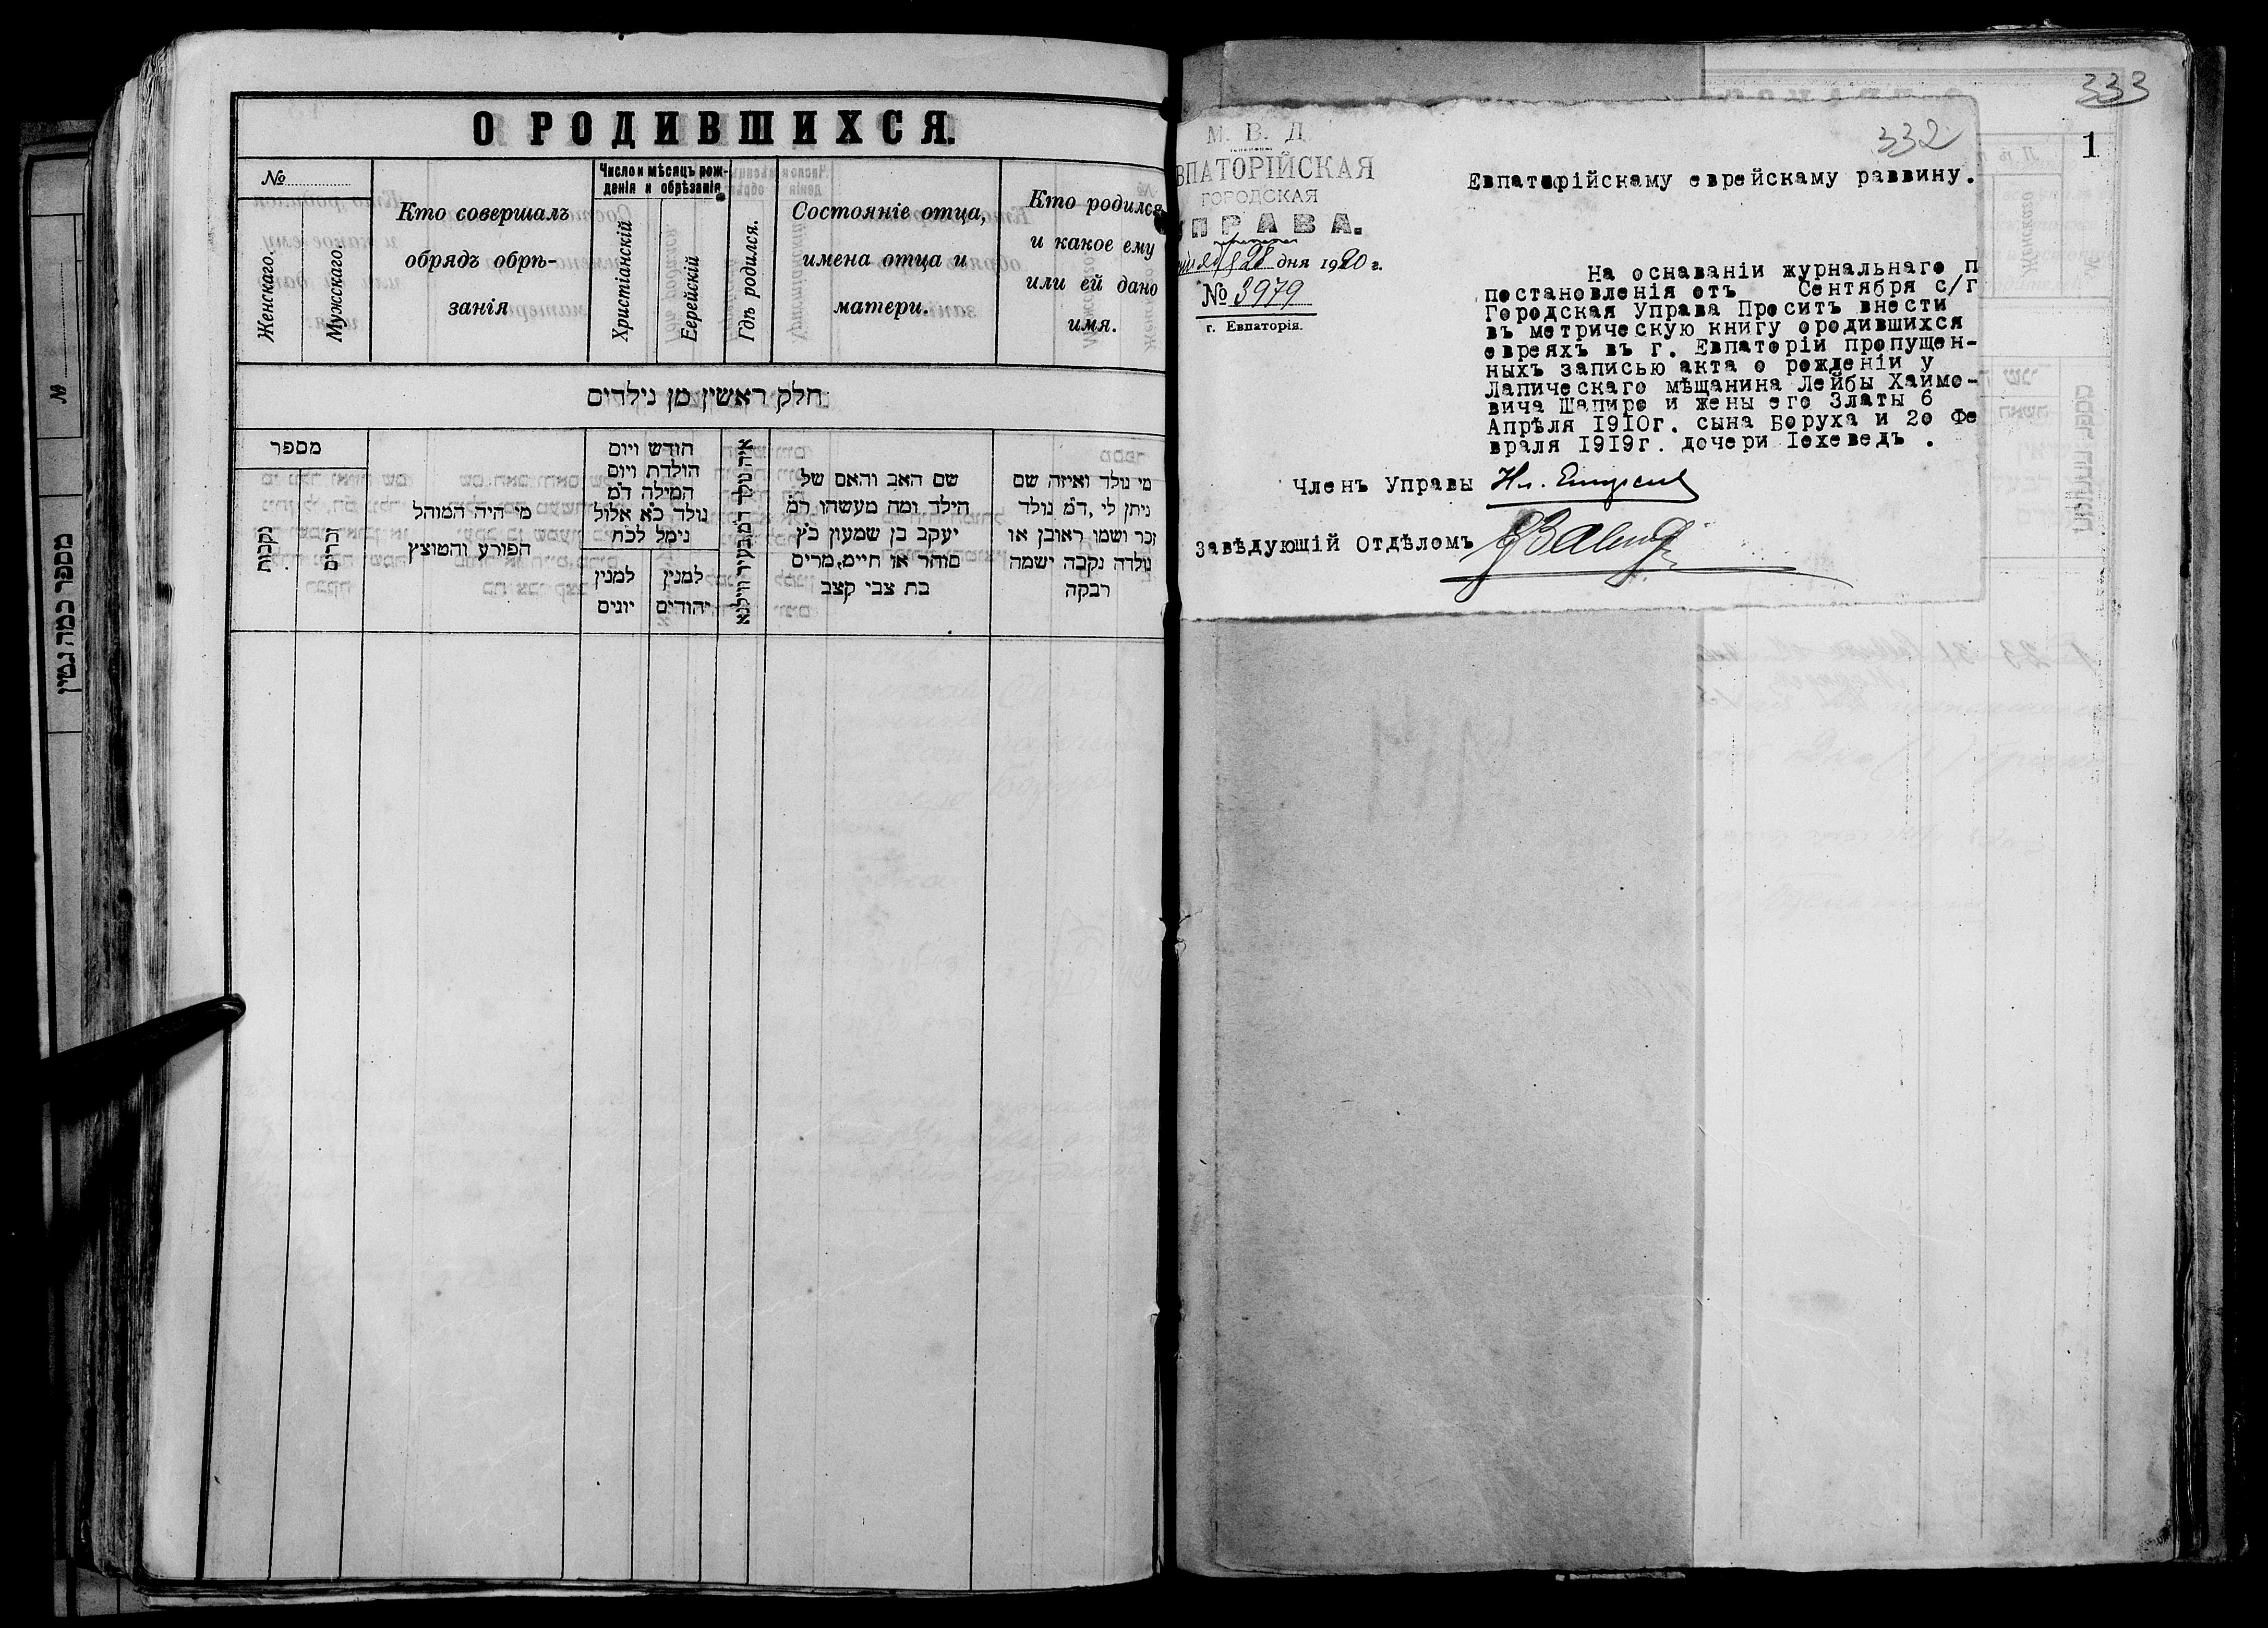 О РОДИВШИХСЯ.
№
Женскаго.
Мужскаго.
Кто совершалъ
обрядъ обрѣ-
занія
Число и мѣсяцъ рож-
денія и обрѣзанія
Христіанскій
Еерейскій
Гдѣ родился.
Состояніе отца,
имена отца и
матери.
Кто родился
и какое ему
или ей дано
имя.
חלק ראשין מן נילדים
מספר
נקבות
זכרים
מי היה המוהל
הפורע והמוצץ
חודש ויום
הולדת ויום
המילה ד״מ
נולד כ״א אלול
נימל לכ״ח
למנין
יונים
למנין
יהודים
שם האב והאם של
הילד ומה מעשהו ד״מ
יעקב בן שמעון כ״ץ
סוחר או חיים, מרים
בת צבי קצב
מי נולד ואיזה שם
ניתן לי, ד״מ נולד
זכר ושמו ראובן או
נולדה נקבה ישמה
רבקה
№
מספר כמה נשין
333
1
332
М. В. Д.
ВПАТОРІЙСКАЯ
ГОРОДСКАЯ
ПРАВА.
28 дня 1920 г.
№ 3979
г. Евпаторія.
Евпаторійскаму еврейскаму раввину.
На оснаваніи журнальнаго п
постановленія отъ Сентября с/г
Городская Управа Просить внести
въ метрическую книгу ородившихся
евреяхъ въ г. Евпаторіи пропущен-
ныхъ записью акта о рожденіи у
Лапическаго мѣщанина Лейбы Хаимо-
вича Шапиро и жены его Златы 6
Апрѣля 1910г. сына Боруха и 20 Фе
враля 1919г. дочери Іохеведъ .
Членъ Управы
Завѣдующій Отдѣломъ